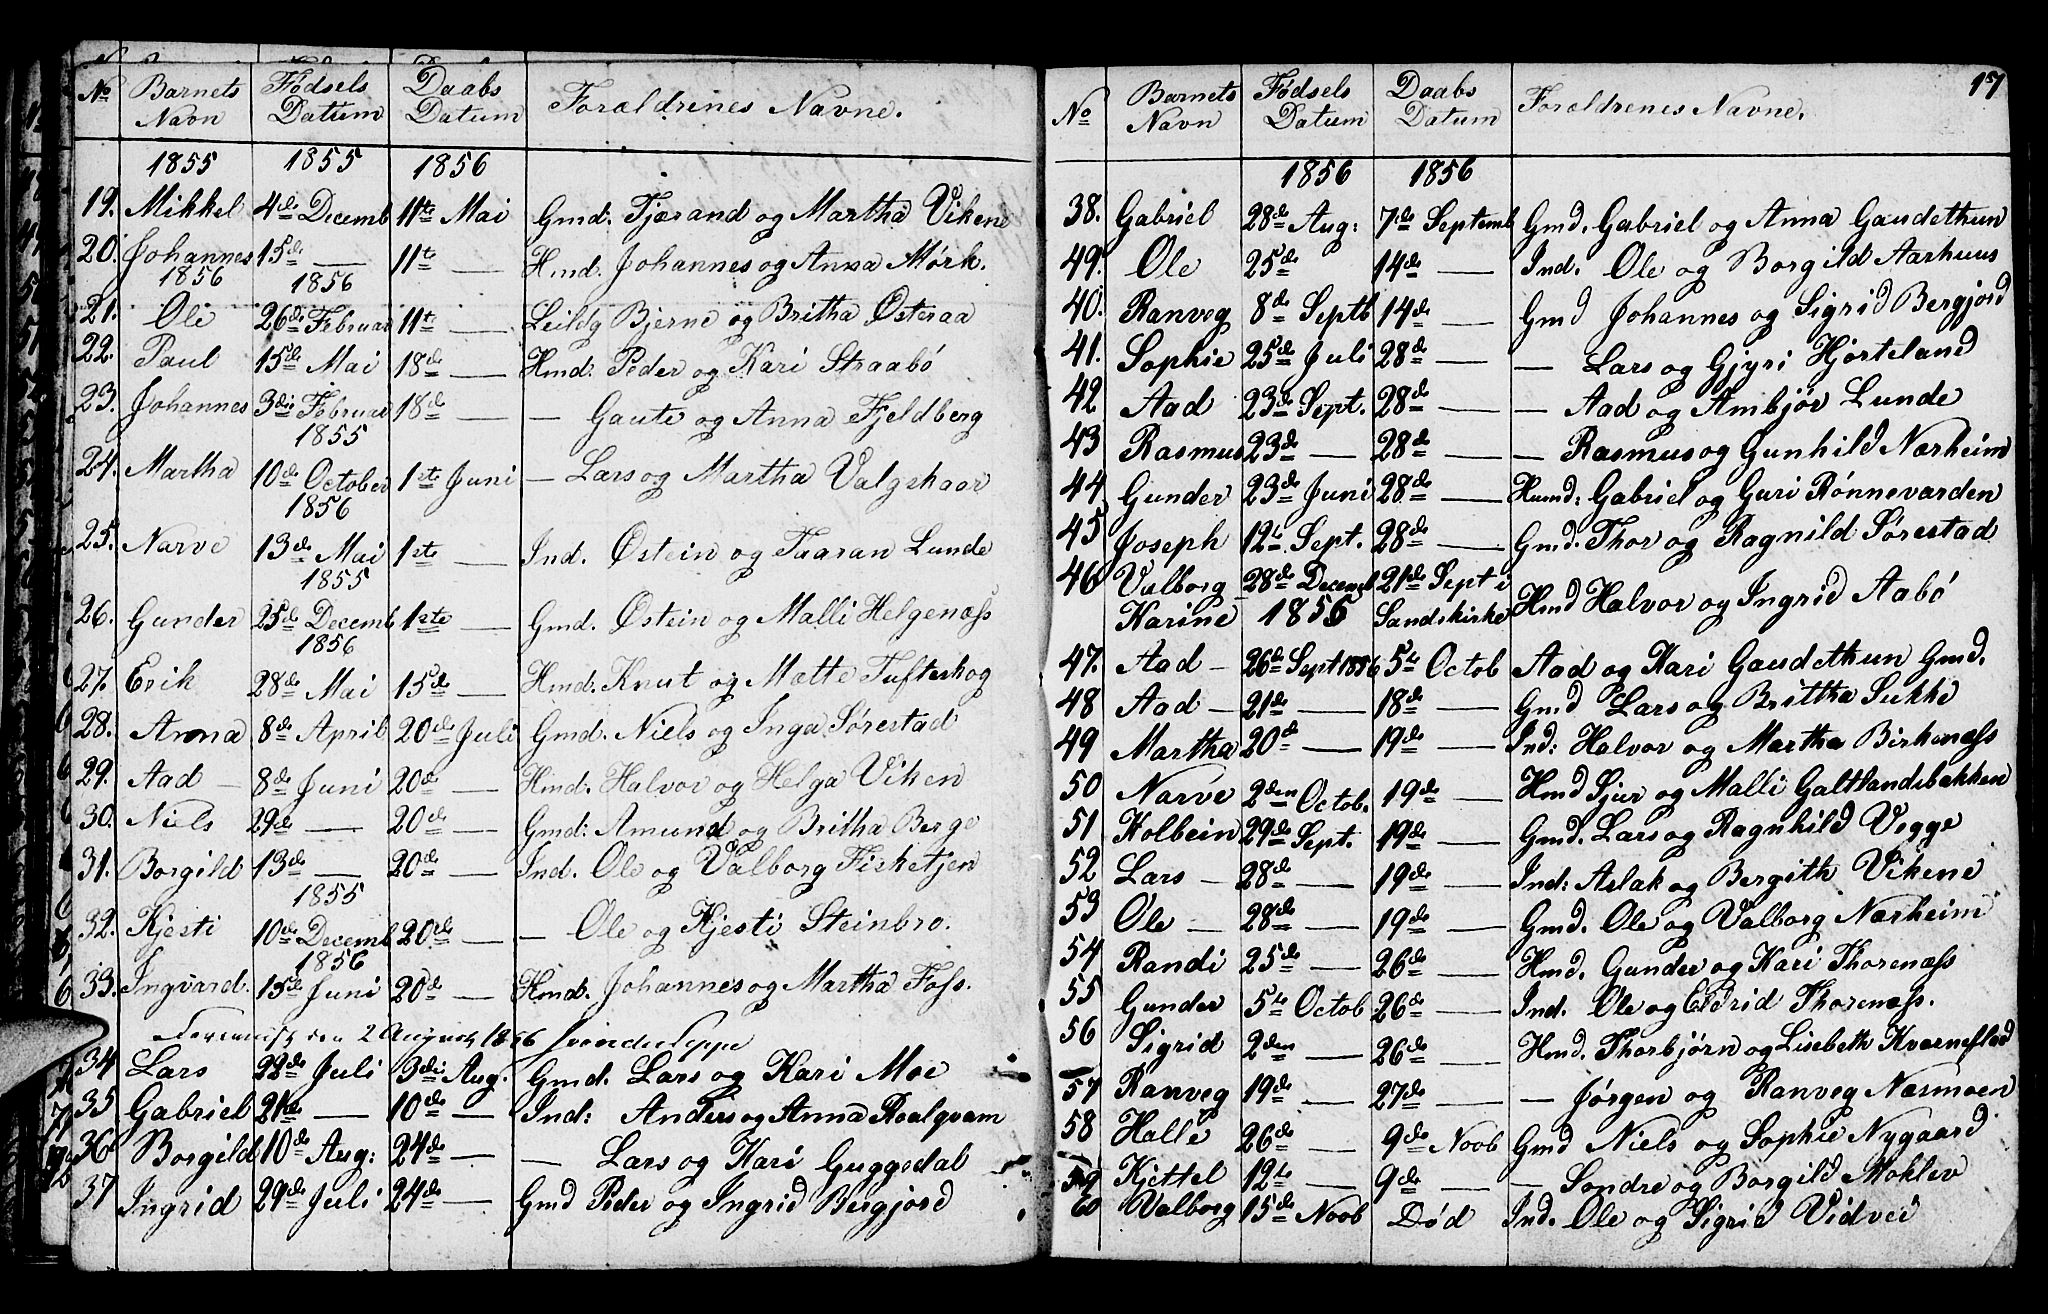 No Barnets Navn Fødsels Datum Daabs Datum Foraldrenes Navne.
1855 1855 1856
19. Mikkel 4de Decemb 11te Mai Gmd. Tjærand og Martha Vikene
20. Johannes 15de — 11te — Hmd. Johannes og Anna Mørk.
1856 1856
21. Ole 26de Februar 11te — Leildg Bjerne og Britha Østeraa
22. Paul 15de Mai 18de — Hmd. Peder og Kari Straabø
23. Johannes 3die Februar 18de — — Gaute og Anna Fjeldberg
1855
24. Martha 10de October 1ste Juni — Lars og Martha Valgskaar
1856
25. Narve 13de Mai 1ste — Ind. Østein og Taaran Lunde
1855
26. Gunder 25de Decemb 1ste — Gmd. Østein og Malli Helgenæss
1856
27. Erik 28de Mai 15de — Hmd. Knut og Mætte Tufteskog
28. Anna 8de April 20de Juli Gmd. Niels og Inga Sørestad
29. Aad — 8de Juni 20de — Hmd: Halvor og Helga Viken
30. Niels 29de — 20de — Gmd: Amund og Britha Berge
31. Borgild 13de — 20de — Ind. Ole og Valborg Fisketjen
1855
32. Kjesti 10de Decemb 20de — — Ole og Kjesti Steinbro.
1856
33. Ingvard. 15de Juni 20de — Hmd. Johannes og Martha Foss.
den 2 August 1856
34 Lars 22de Juli 3die Aug. Gmd. Lars og Kari Moe
35 Gabriel 21de — 10de — Ind: Anders og Anna Roalqvam
36 Borgild 10de Aug: 24de — — Lars og Kari Guggedal
37 Ingrid 29de Juli 24de — Gmd Peder og Ingrid Bergjord
17
No Barnets Navn Fødsels Datum Daabs Datum Foraldrenes Navne.
1856 1856
38. Gabriel 28de Aug: 7de Septemb Gmd. Gabriel og Anna Gaudethun
49. Ole 25de 14de — Ind. Ole og Borgild Aarhuus
40. Ranveg 8de Septb 14de — Gmd Johannes og Sigrid Bergjord
41. Sophie 25de Juli 28de — — Lars og Gjyri Hjorteland
42 Aad 23de Sept. 28de — — Aad og Ambjør Lunde
43 Rasmus 23de — 28de — — Rasmus og Gunhild Nærheim
44 Gunder 23de Juni 28de — Husmd: Gabriel og Guri Rønnevarden
45 Joseph 12te Sept. 28de — Gmd. Thor og Ragnild Sørestad
46 Valborg Karine 28de Decemb 1855 21de Sept i Sandskirke Hmd Halvor og Ingrid Aabø
47. Aad — 26de Sept 1856 5te Octob Aad og Kari Gaudethun Gmd.
48 Aad — 21de — 18de — Gmd Lars og Brittha Sukke
49 Martha 20de — 19de — Ind: Halvor og Martha Birkenæss
50 Narve 2den Octob. 19de — Hmd Sjur og Malli Galtlandsbakken
51 Kolbein 29de Sept. 19de — Gmd. Lars og Ragnhild Vegge
52 Lars — 28de — 19de — Ind: Aslak og Bergith Vikene
53 Ole — 28de — 19de — Gmd. Ole og Valborg Nærheim
54 Randi 25de — 26de — Hmd. Gunder og Kari Thorenæss
55 Gunder 5te Octob 26de — Ind. Ole og Eldrid Thorenæss.
56 Sigrid 2den — 26de — Hmd. Thorbjørn og Lisebeth Kvarnestad
57 Ranveg 19de — 27de — — Jørgen og Ranveg Næsmoen
58 Halle 26de — 9de Noob Gmd Niels og Sophie Nygaard
59 Kjettel 12te — 9de — — Sondre og Borgild Moklev
60 Valborg 15de Noob Død Ind. Ole og Sigrid Vidvei